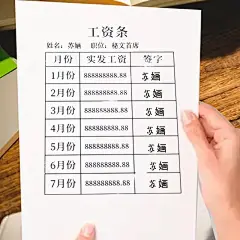 工资条
姓名：苏婳 职位：秘文首席
月份 实发工资 签字
1月份 888888888.88 苏婳
2月份 888888888.88 苏婳
3月份 888888888.88 苏婳
4月份 888888888.88 苏婳
5月份 888888888.88 苏婳
6月份 888888888.88 苏婳
7月份 888888888.88 苏婳